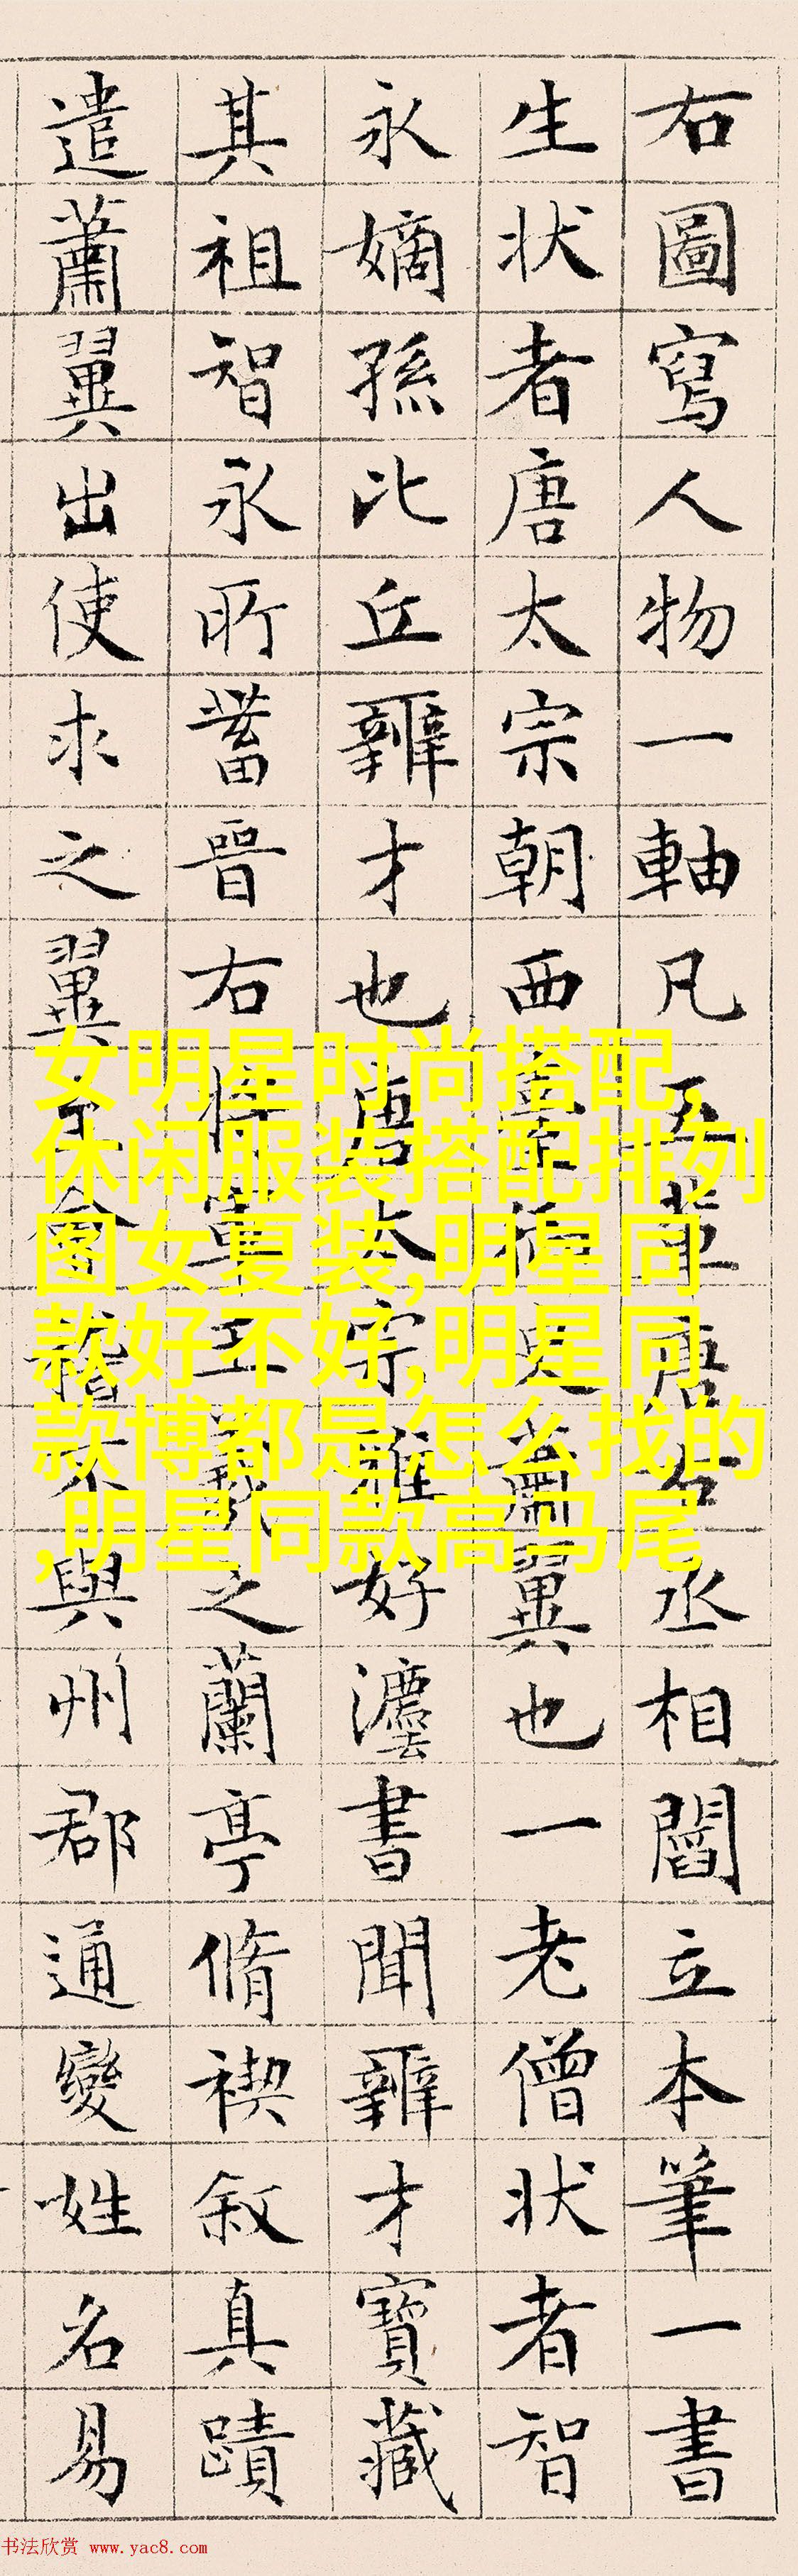 右圖寫人物一軸凡五輩唐右丞相閻立本筆一書
生状者唐太宗朝西臺御史蕭翼也一老僧状者智
永嫡孫比丘辯才也唐太宗雅好灋書聞辯才寶藏
其祖智永所蓄晉右將軍王羲之蘭亭脩禊叙真蹟
遣蕭翼出使求之翼至會稽不與州郡通變姓名易
女明星时尚搭配,
休闲服装搭配排列
图女夏装,明星同
款好不好,明星同
款博都是怎么找的
,明星同款高马尾
书法欣赏 www.yac8.com